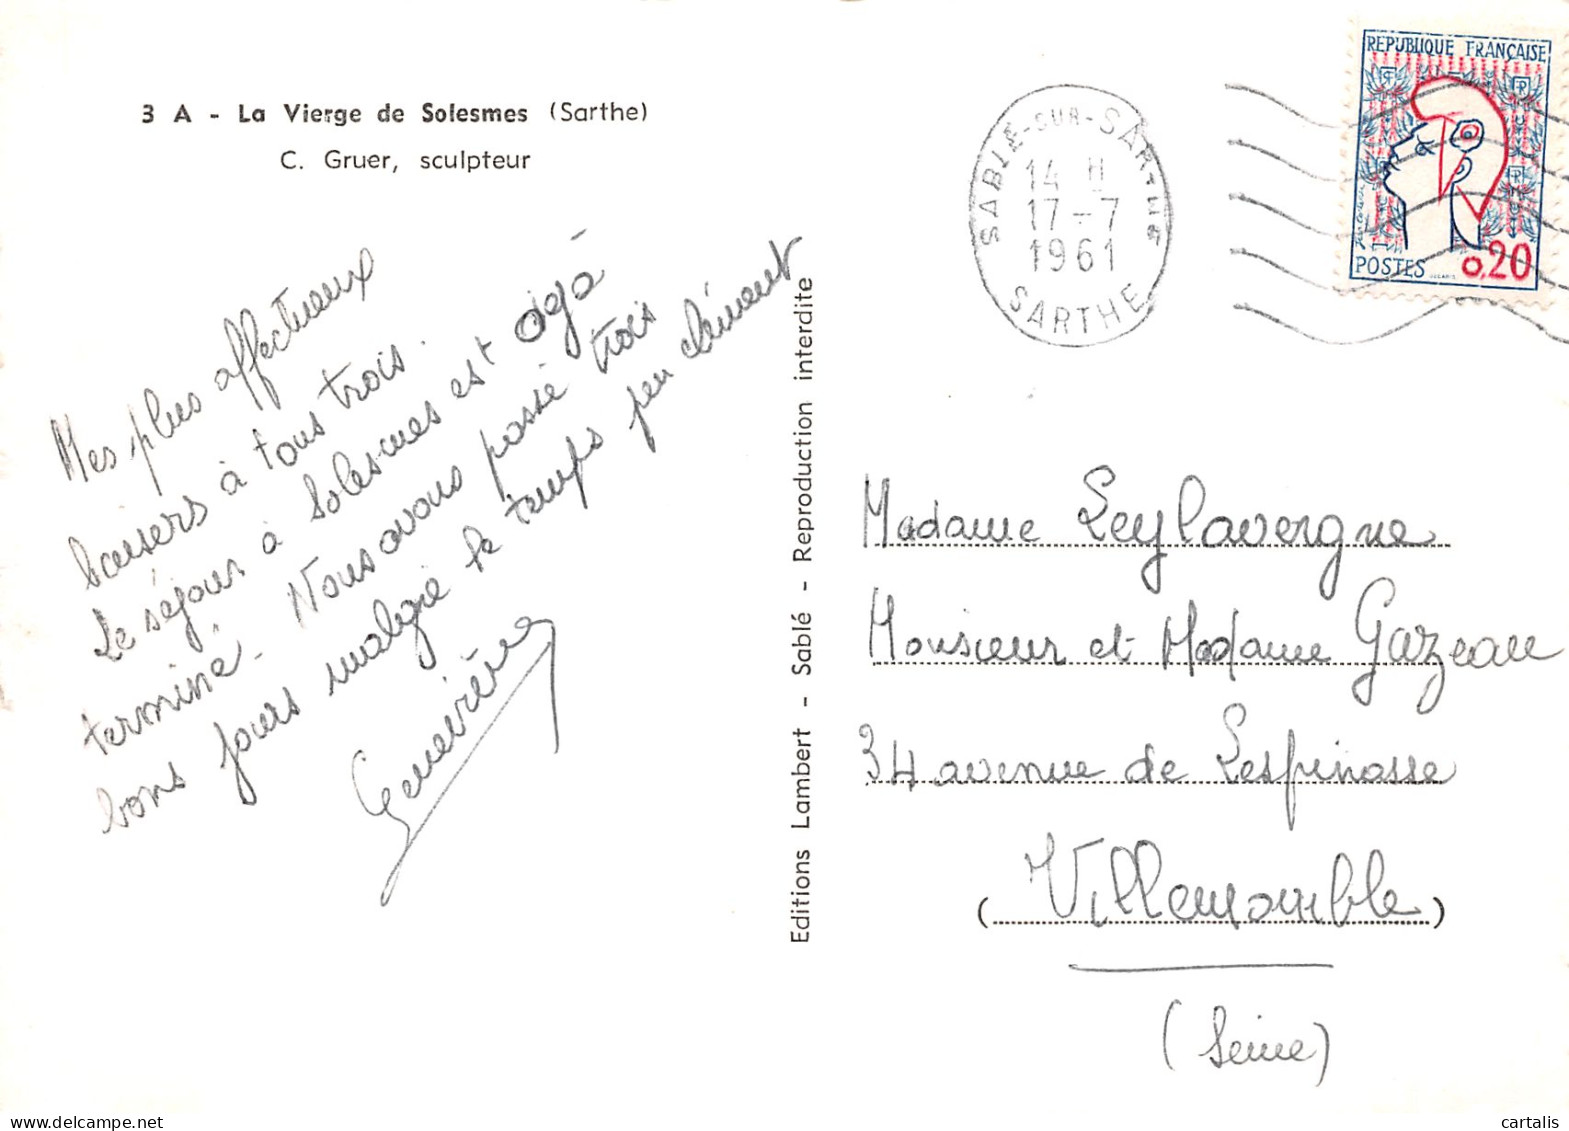 3 A - La Vierge de Solesmes (Sarthe)
C. Gruer, sculpteur
Mes plus affectueux
baisers à tous trois.
Le séjour à Solesmes est déjà
terminé - Nous avons passé trois
bons jours malgré le temps peu clément
Geneviève
Editions Lambert - Sablé - Reproduction interdite
SABLÉ-SUR-SARTHE
14 H
17-7
1961
SARTHE
REPUBLIQUE FRANÇAISE
POSTES 0,20
Madame Leylavergne
Monsieur et Madame Gazeau
34 avenue de Lespinasse
(Villemomble)
(Seine)
cartalis